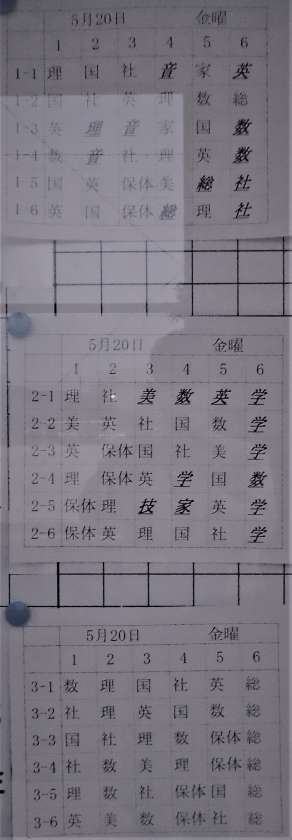 5月20日 金曜
1 2 3 4 5 6
1-1 理 国 社 音 家 英
1-2 国 社 英 理 数 総
1-3 英 理 音 家 国 数
1-4 数 音 社 理 英 数
1-5 国 英 保体 美 総 社
1-6 英 国 保体 総 理 社
5月20日 金曜
1 2 3 4 5 6
2-1 理 社 美 数 英 学
2-2 美 英 社 国 数 学
2-3 英 保体 国 社 美 学
2-4 理 保体 英 学 国 数
2-5 保体 理 技 家 英 学
2-6 保体 英 理 国 社 学
5月20日 金曜
1 2 3 4 5 6
3-1 数 理 国 社 英 総
3-2 社 理 英 国 数 総
3-3 国 社 理 数 保体 総
3-4 社 数 美 理 保体 総
3-5 理 数 社 保体 国 総
3-6 英 美 数 保体 社 総